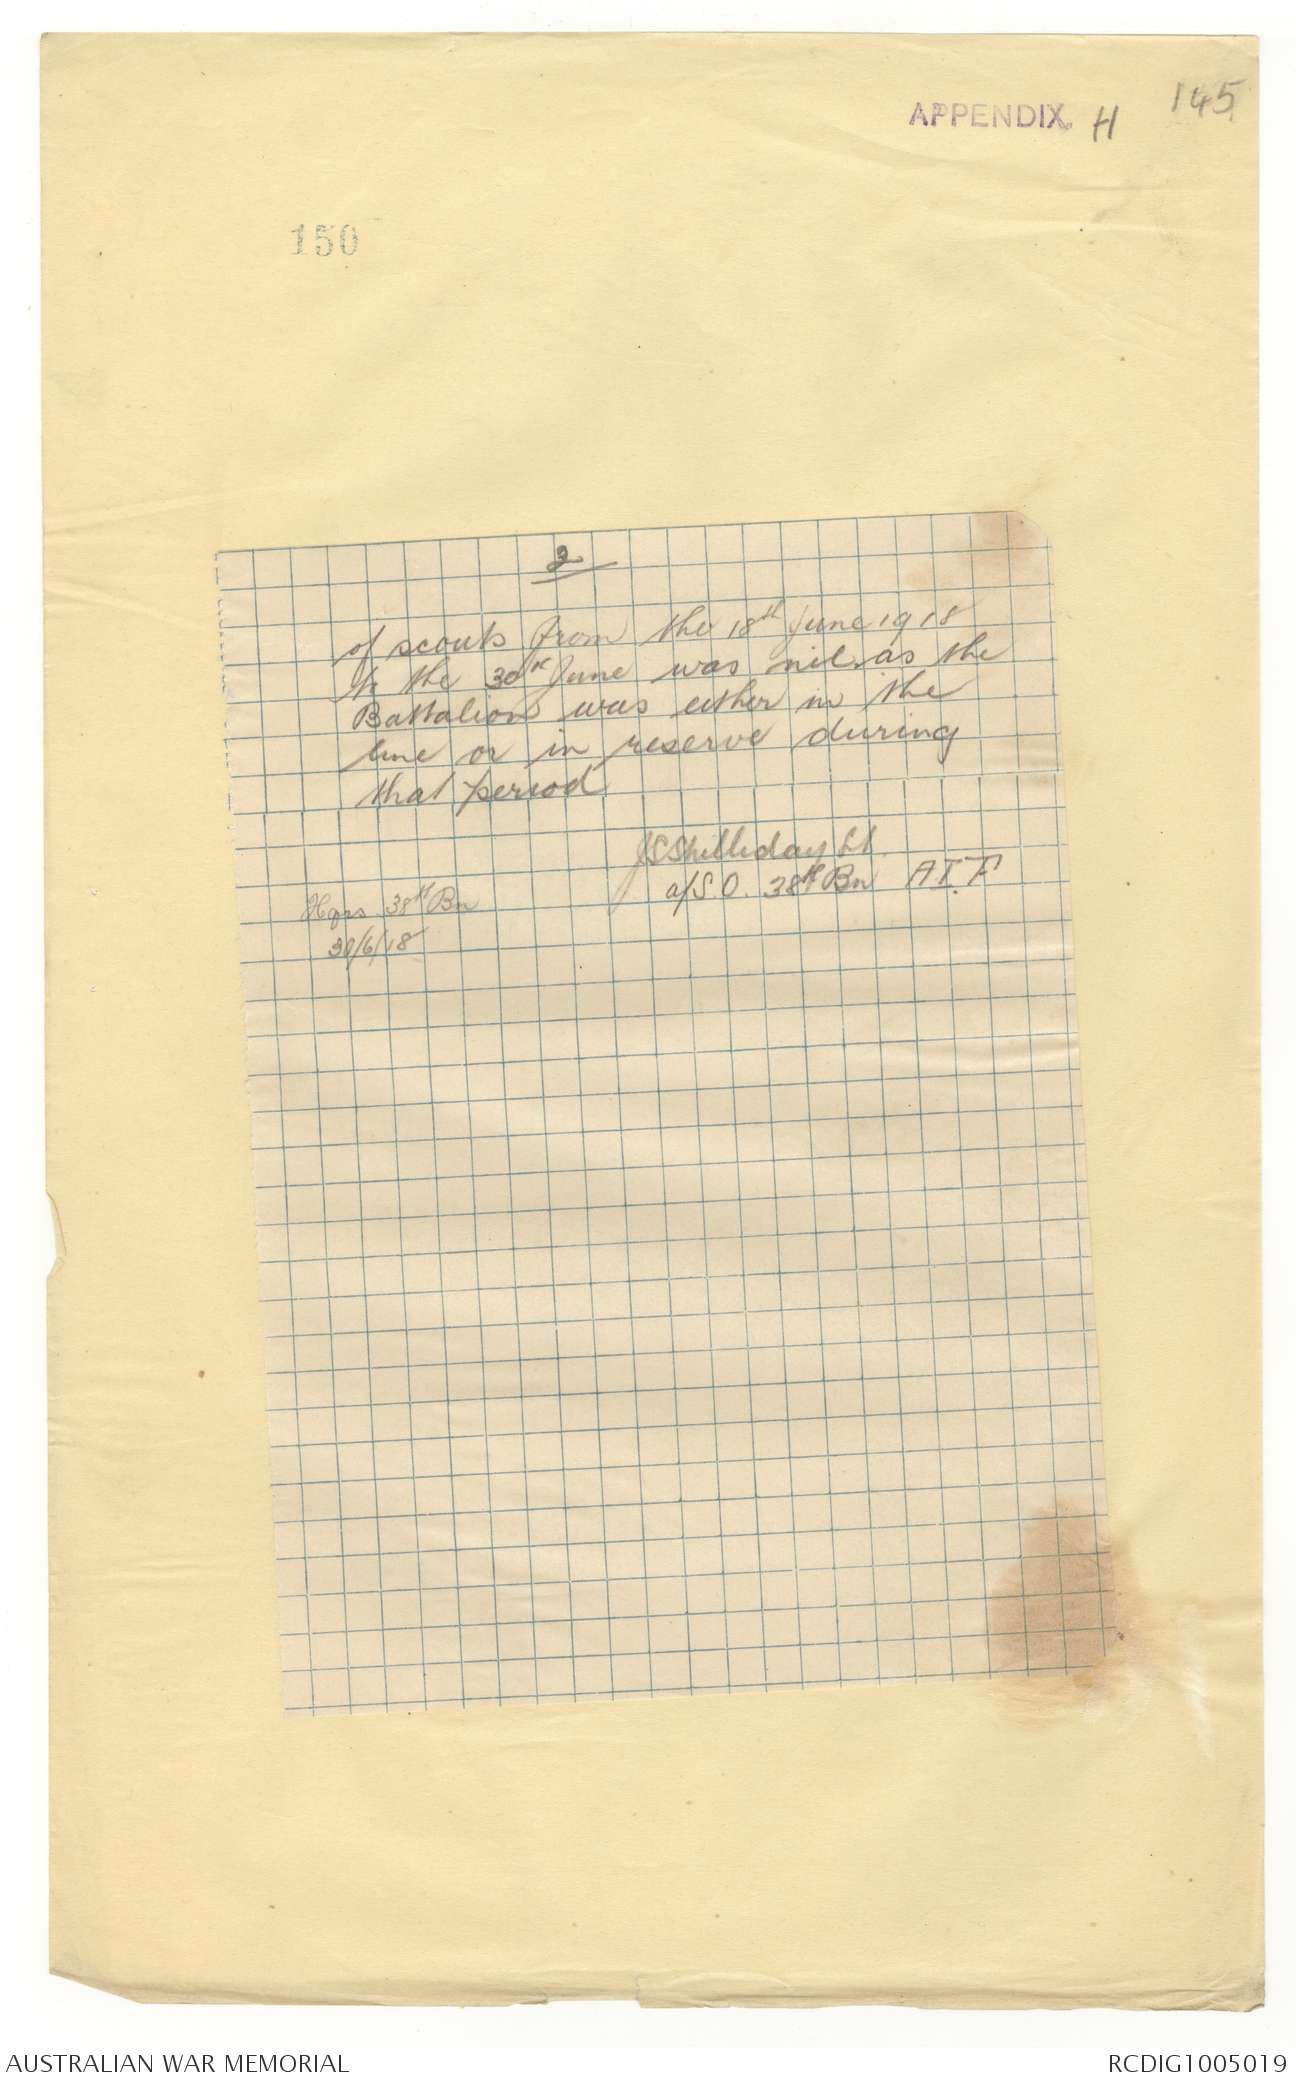 APPENDIX H 145
150
2
of scouts from the 18th June 1918
to the 30th June was nil as the
Battalion was either in the
line or in reserve during
that period
JSShilliday Lt
a/S.O. 38th Bn A.I.F
Hqrs 38th Bn
30/6/18
AUSTRALIAN WAR MEMORIAL
RCDIG1005019